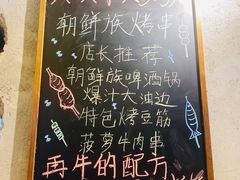 朝鲜族烤串
店长推荐
朝鲜族啤酒锅
爆汁大油边
特色烤豆筋
菠萝牛肉串
再牛的配方